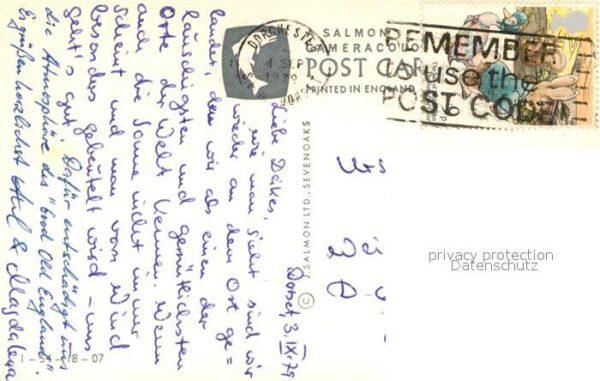 SALMON
CAMERACOLOUR
POST CARD
PRINTED IN ENGLAND
DORCHESTER
4 SEP
1979
REMEMBER
to use the
POST CODE
© J. SALMON LTD., SEVENOAKS
Dorset, 3.IX.79
Liebe Deikes,
wie man sieht sind wir
wieder an dem Ort ge=
landet, den wir als einen der
lauschigsten und gemütlichsten
Orte der Welt kennen. Wenn
auch die Sonne nicht immer
scheint und man vom Wind
besonders gebeutelt wird – uns
geht's gut. Dafür entschädigt uns
die Atmosphäre des "Good Old England"!
Es grüßen herzlichst &  Magdalena
1-54-18-07
privacy protection
Datenschutz